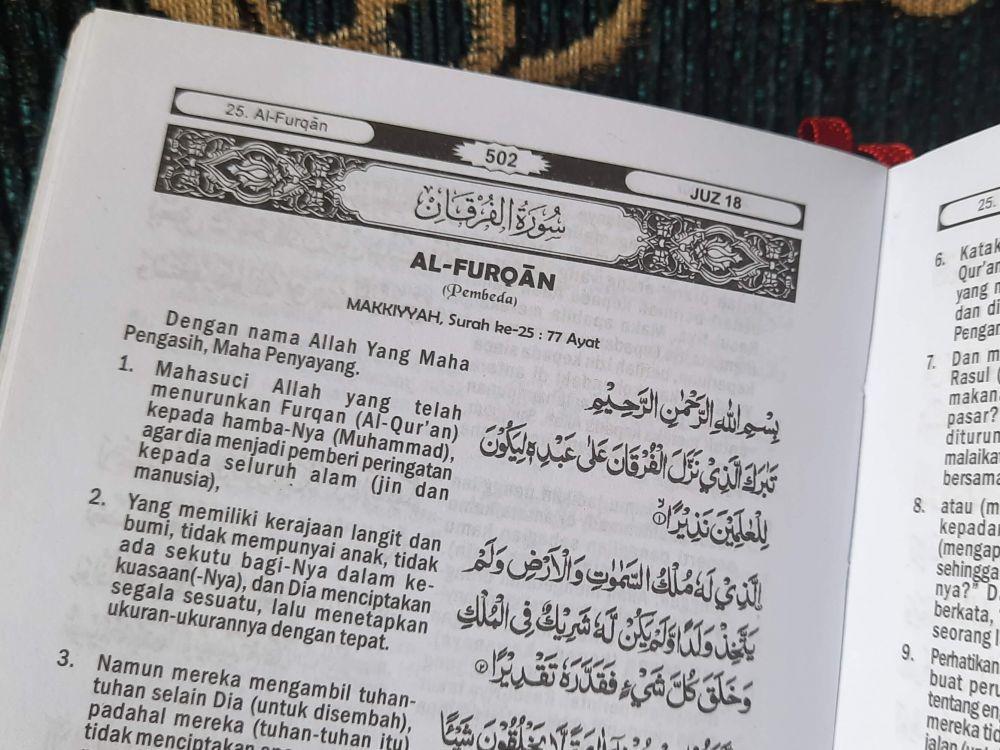 25. Al-Furqān
502
JUZ 18
سُورَةُ الْفُرْقَانِ
AL-FURQĀN
(Pembeda)
MAKKIYYAH, Surah ke-25 : 77 Ayat
Dengan nama Allah Yang Maha
Pengasih, Maha Penyayang.
1. Mahasuci Allah yang telah
menurunkan Furqan (Al-Qur'an)
kepada hamba-Nya (Muhammad),
agar dia menjadi pemberi peringatan
kepada seluruh alam (jin dan
manusia),
2. Yang memiliki kerajaan langit dan
bumi, tidak mempunyai anak, tidak
ada sekutu bagi-Nya dalam ke-
kuasaan(-Nya), dan Dia menciptakan
segala sesuatu, lalu menetapkan
ukuran-ukurannya dengan tepat.
3. Namun mereka mengambil tuhan-
tuhan selain Dia (untuk disembah),
padahal mereka (tuhan-tuhan itu)
tidak menciptakan
بِسْمِ اللّٰهِ الرَّحْمٰنِ الرَّحِيْمِ
تَبٰرَكَ الَّذِيْ نَزَّلَ الْفُرْقَانَ عَلٰى عَبْدِهٖ لِيَكُوْنَ
لِلْعٰلَمِيْنَ نَذِيْرًاۙ ۝١
الَّذِيْ لَهٗ مُلْكُ السَّمٰوٰتِ وَالْاَرْضِ وَلَمْ
يَتَّخِذْ وَلَدًا وَّلَمْ يَكُنْ لَّهٗ شَرِيْكٌ فِى الْمُلْكِ
وَخَلَقَ كُلَّ شَيْءٍ فَقَدَّرَهٗ تَقْدِيْرًا ۝٢
لَّا يَخْلُقُوْنَ شَيْـًٔا
25.
6. Katak
Qur'an
yang
dan di
Pengan
7. Dan m
Rasul (
makan
pasar?
diturun
malaika
bersama
8. atau (m
kepadan
(mengap
sehingga
nya?" D
berkata,
seorang
9. Perhatikan
buat peru
tentang en
mereka tid